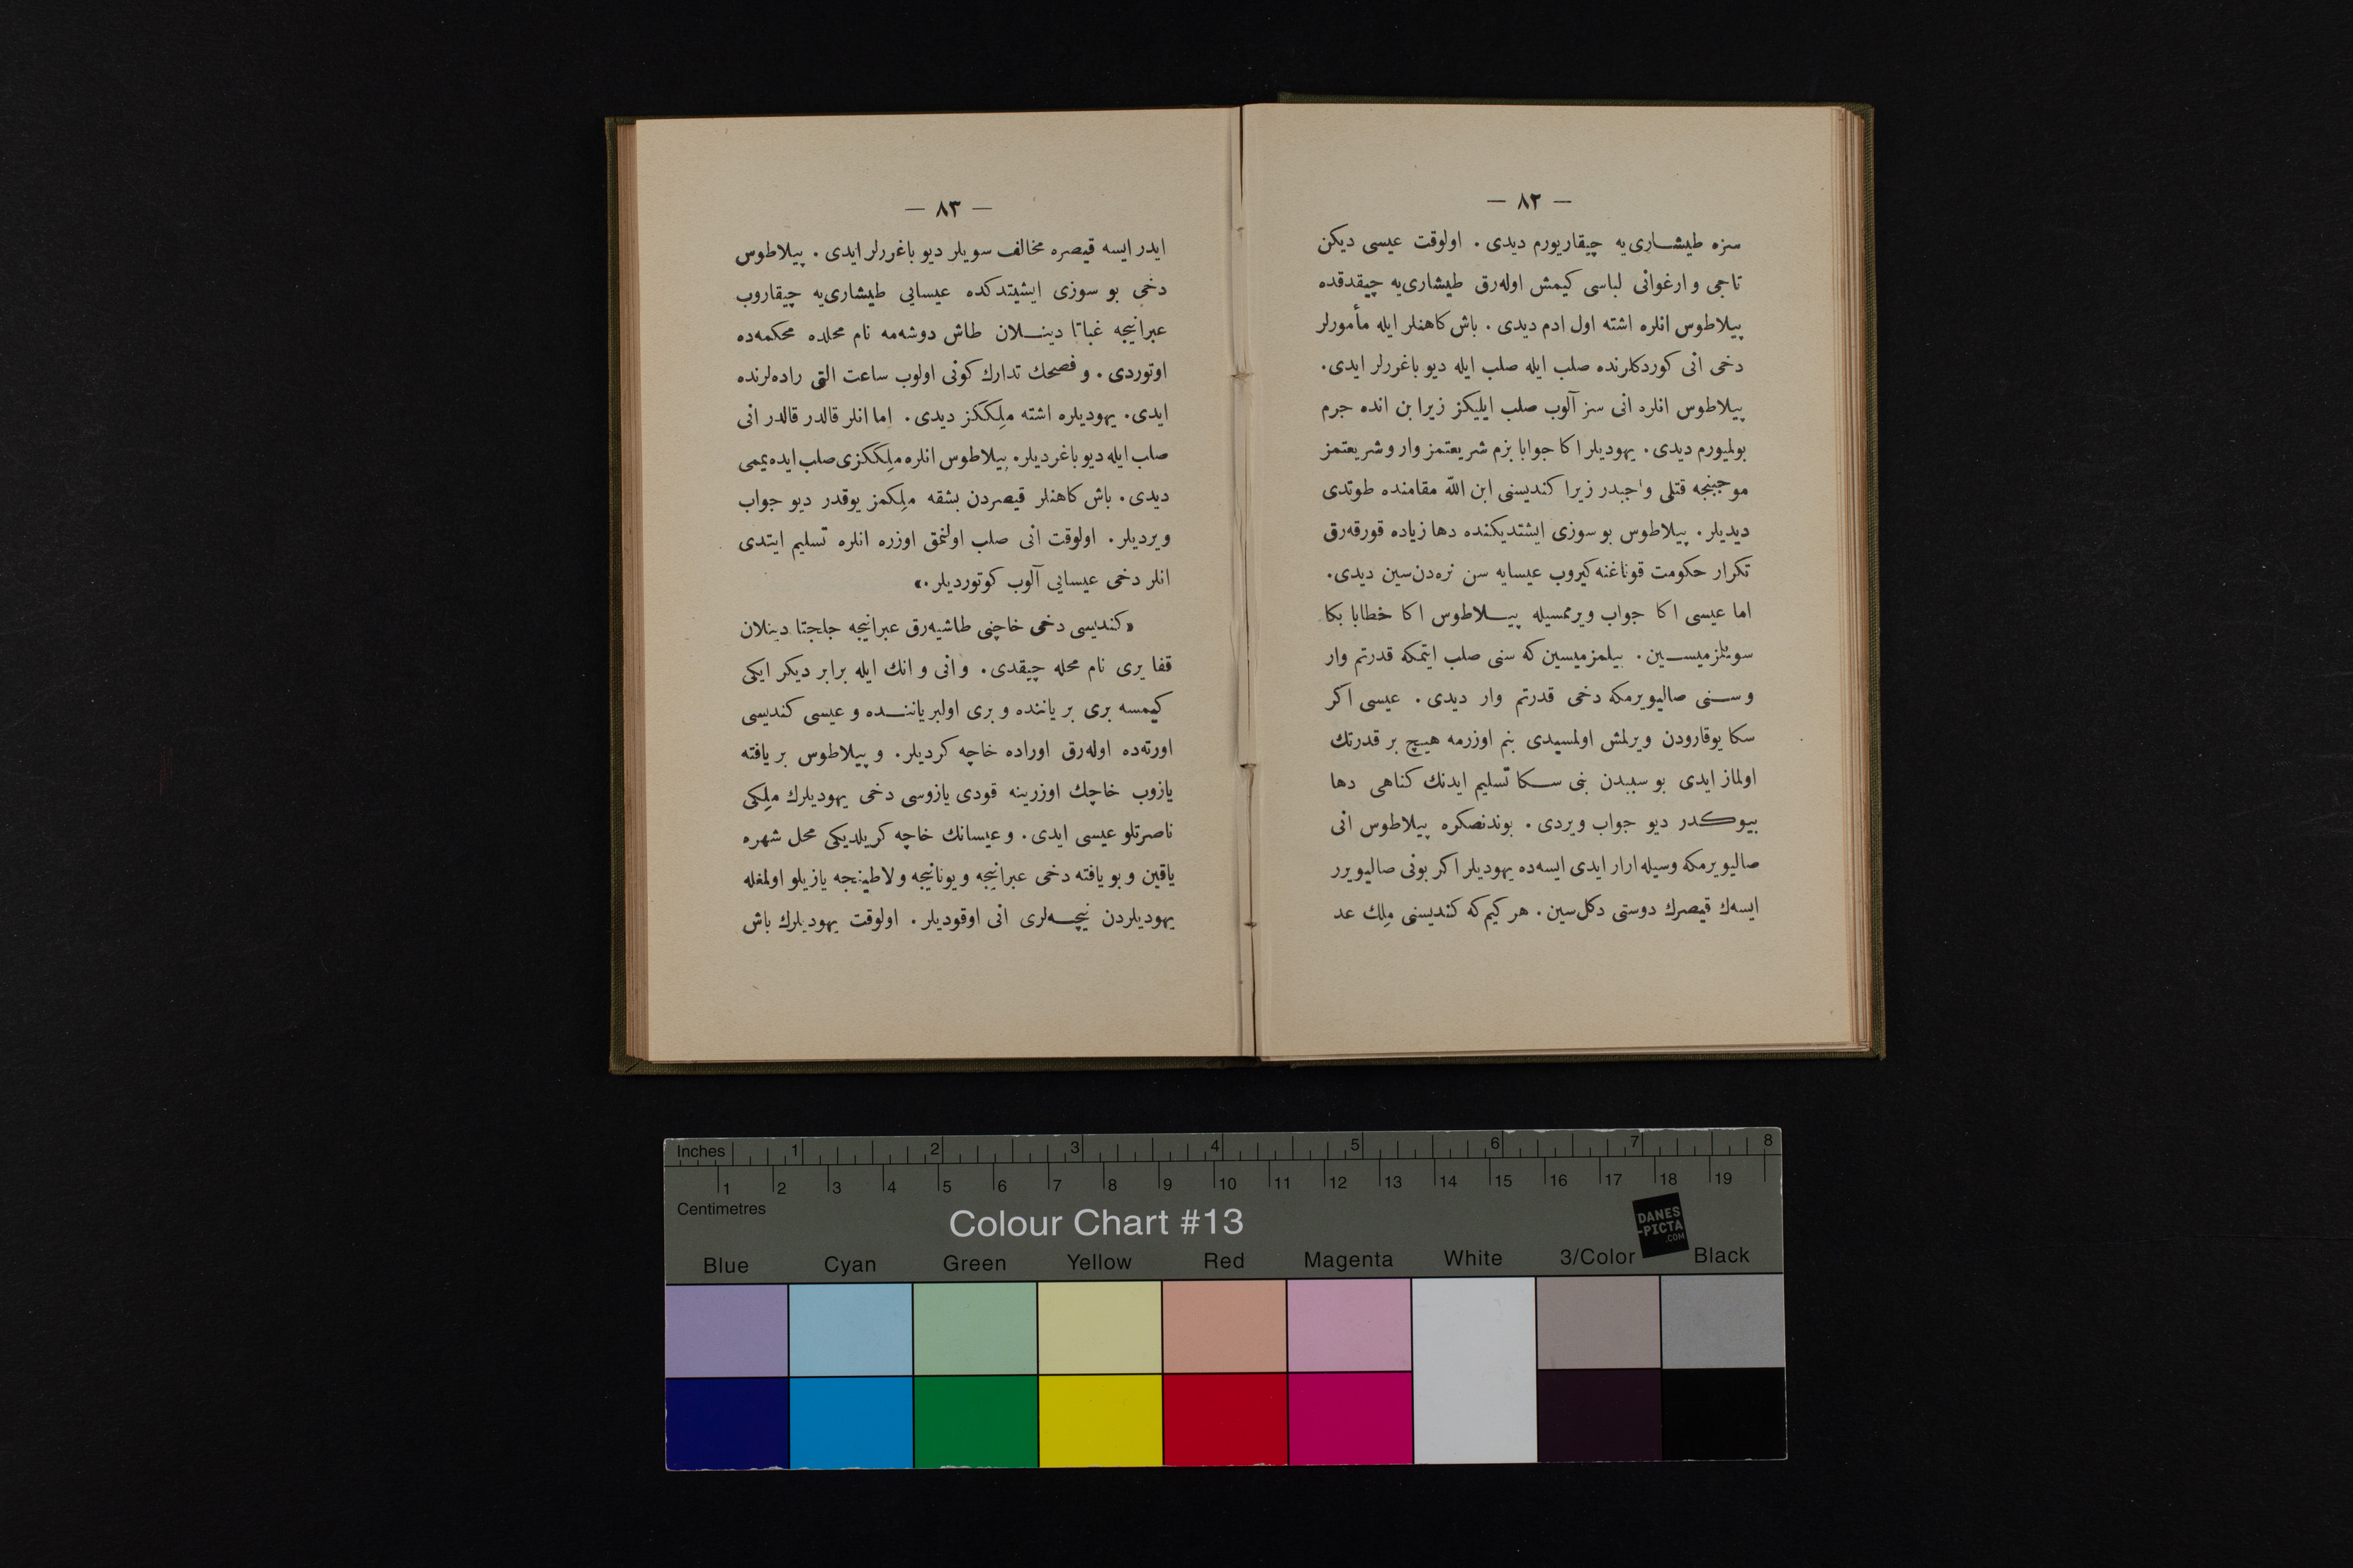 — ٨٢ —
سزه طیشاری‌یه چیقاریورم دیدی . اولوقت عیسی دیکن
تاجی و ارغوانی لباسی کیمش اوله‌رق طیشاری‌یه چیقدقده
پیلاطوس انلره اشته اول ادم دیدی . باش کاهنلر ایله مأمورلر
دخی انی کوردکلرنده صلب ایله صلب ایله دیو باغررلر ایدی .
پیلاطوس انلره انی سز آلوب صلب ایلیکز زیرا بن انده جرم
بولمیورم دیدی . یهودیلر اکا جوابا بزم شریعتمز وار و شریعتمز
موجبنجه قتلی واجبدر زیرا کندیسنی ابن اللّه مقامنده طوتدی
دیدیلر . پیلاطوس بو سوزی ایشتدیکنده دها زیاده قورقه‌رق
تکرار حکومت قوناغنه کیروب عیسایه سن نره‌دن‌سین دیدی .
اما عیسی اکا جواب ویرممسیله پیلاطوس اکا خطابا بکا
سویلزمیسین . بیلمزمیسین که سنی صلب ایتمکه قدرتم وار
و سنی صالیویرمکه دخی قدرتم وار دیدی . عیسی اکر
سکا یوقارودن ویرلمش اولمسیدی بنم اوزرمه هیچ بر قدرتك
اولماز ایدی بو سببدن بنی سکا تسلیم ایدنك کناهی دها
بیوکدر دیو جواب ویردی . بوندنصکره پیلاطوس انی
صالیویرمکه وسیله ارار ایدی ایسه‌ده یهودیلر اکر بونی صالیویرر
ایسه‌ك قیصرك دوستی دکل‌سین . هر کیم که کندیسنی مِلِك عد
— ٨٣ —
ایدر ایسه قیصره مخالف سویلر دیو باغررلر ایدی . پیلاطوس
دخی بو سوزی ایشیتدکده عیسایی طیشاری‌یه چیقاروب
عبرانیجه غباتا دینلان طاش دوشه‌مه نام محلده محکمه‌ده
اوتوردی . و فصحك تدارك کونی اولوب ساعت التی راده‌لرنده
ایدی . یهودیلره اشته ملِککز دیدی . اما انلر قالدر قالدر انی
صلب ایله دیو باغردیلر . پیلاطوس انلره ملِککزی صلب ایده‌یممی
دیدی . باش کاهنلر قیصردن بشقه ملِکمز یوقدر دیو جواب
ویردیلر . اولوقت انی صلب اولنمق اوزره انلره تسلیم ایتدی
انلر دخی عیسایی آلوب کوتوردیلر .»
«کندیسی دخی خاچنی طاشیه‌رق عبرانیجه جلجتا دینلان
قفا یری نام محله چیقدی . و انی و انك ایله برابر دیکر ایکی
کیمسه بری بر یاننده و بری اولبر یاننده و عیسی کندیسی
اورته‌ده اوله‌رق اوراده خاچه کردیلر . و پیلاطوس بر یافته
یازوب خاچك اوزرینه قودی یازوسی دخی یهودیلرك ملِکی
ناصرتلو عیسی ایدی . و عیسانك خاچه کریلدیکی محل شهره
یاقین و بو یافته دخی عبرانیجه و یونانیجه و لاطینجه یازیلو اولمغله
یهودیلردن نیچه‌لری انی اوقودیلر . اولوقت یهودیلرك باش
Inches 1 2 3 4 5 6 7 8
1 2 3 4 5 6 7 8 9 10 11 12 13 14 15 16 17 18 19
Centimetres
Colour Chart #13
DANES
-PICTA
.COM
Blue Cyan Green Yellow Red Magenta White 3/Color Black